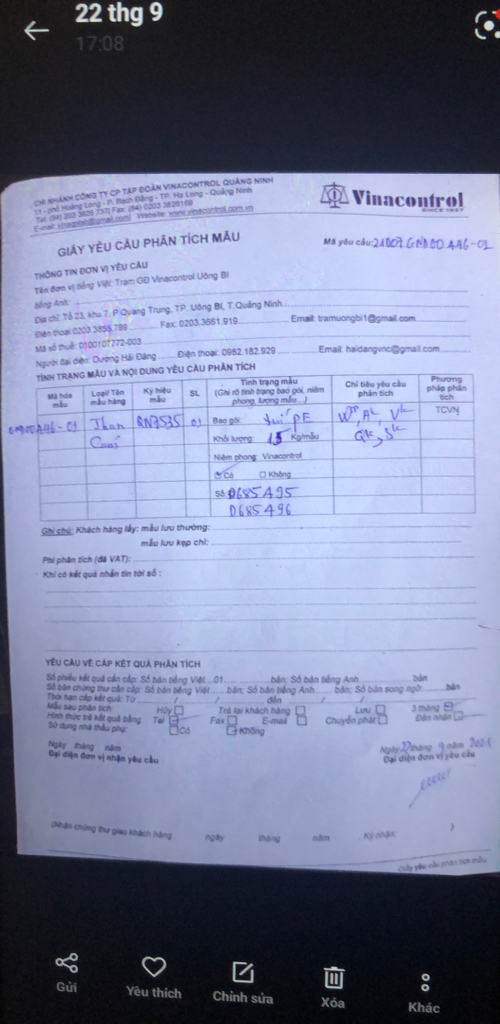 22 thg 9
17:08
CHI NHÁNH CÔNG TY CP TẬP ĐOÀN VINACONTROL QUẢNG NINH
11 - phố Hoàng Long - P. Bạch Đằng - TP. Hạ Long - Quảng Ninh
Website: www.vinacontrol.com.vn
Vinacontrol
SINCE 1957
GIẤY YÊU CẦU PHÂN TÍCH MẪU
Mã yêu cầu:
THÔNG TIN ĐƠN VỊ YÊU CẦU
Tên đơn vị tiếng Việt: Trạm GĐ Vinacontrol Uông Bí
tiếng Anh:
Địa chỉ: Tổ 23, khu 7, P.Quang Trung, TP. Uông Bí, T.Quảng Ninh
Điện thoại:0203.3855.789 Fax: 0203.3661.919 Email: tramuongbi1@gmail.com
Mã số thuế: 0100107772-003
Người đại diện: Dương Hải Đăng Điện thoại: 0982.182.929 Email: haidangvnc@gmail.com
TÌNH TRẠNG MẪU VÀ NỘI DUNG YÊU CẦU PHÂN TÍCH
Mã hóa mẫu
Loại/ Tên mẫu hàng
Ký hiệu mẫu
SL
Tình trạng mẫu
(Ghi rõ tình trạng bao gói, niêm phong, lượng mẫu...)
Chỉ tiêu yêu cầu phân tích
Phương pháp phân tích
Than
QN3535
01
Bao gói: túi PE
TCVN
Khối lượng: 1,5 Kg/mẫu
Niêm phong: Vinacontrol
Có Không
Số: 0685495
0685496
Ghi chú: Khách hàng lấy: mẫu lưu thường:
mẫu lưu kẹp chì:
Phí phân tích (đã VAT):
Khi có kết quả nhắn tin tới số :
YÊU CẦU VỀ CẤP KẾT QUẢ PHÂN TÍCH
Số phiếu kết quả cần cấp: Số bản tiếng Việt...01 bản; Số bản tiếng Anh bản
Số bản chứng thư cần cấp: Số bản tiếng Việt bản; Số bản tiếng Anh bản; Số bản song ngữ bản
Thời hạn cấp kết quả: Từ / / đến / /
Mẫu sau phân tích: Hủy Trả lại khách hàng Lưu 3 tháng
Hình thức trả kết quả bằng Tel Fax E-mail Chuyển phát Đến nhận
Sử dụng nhà thầu phụ: Có Không
Ngày tháng năm
Đại diện đơn vị nhận yêu cầu
Ngày 22 tháng 9 năm 2021
Đại diện đơn vị yêu cầu
(Nhận chứng thư giao khách hàng ngày tháng năm Ký nhận: )
Giấy yêu cầu phân tích mẫu
Gửi
Yêu thích
Chỉnh sửa
Xóa
Khác